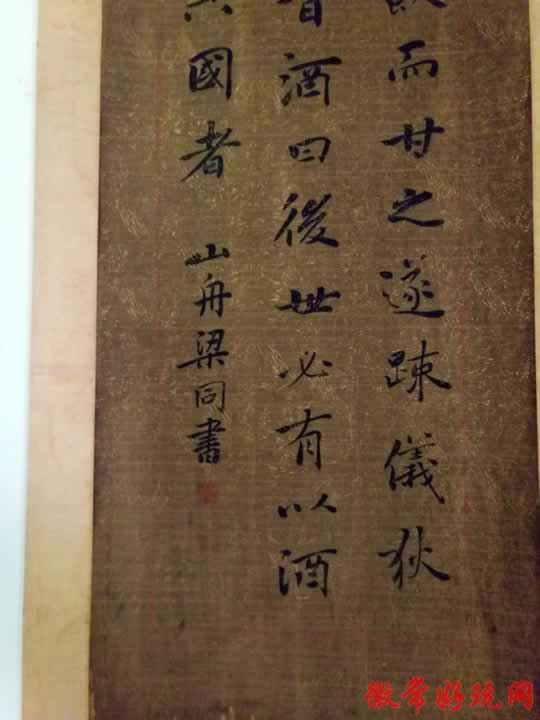 飲而甘之遂踈儀狄
旨酒曰後世必有以酒
其國者 山舟梁同書
常好玩网